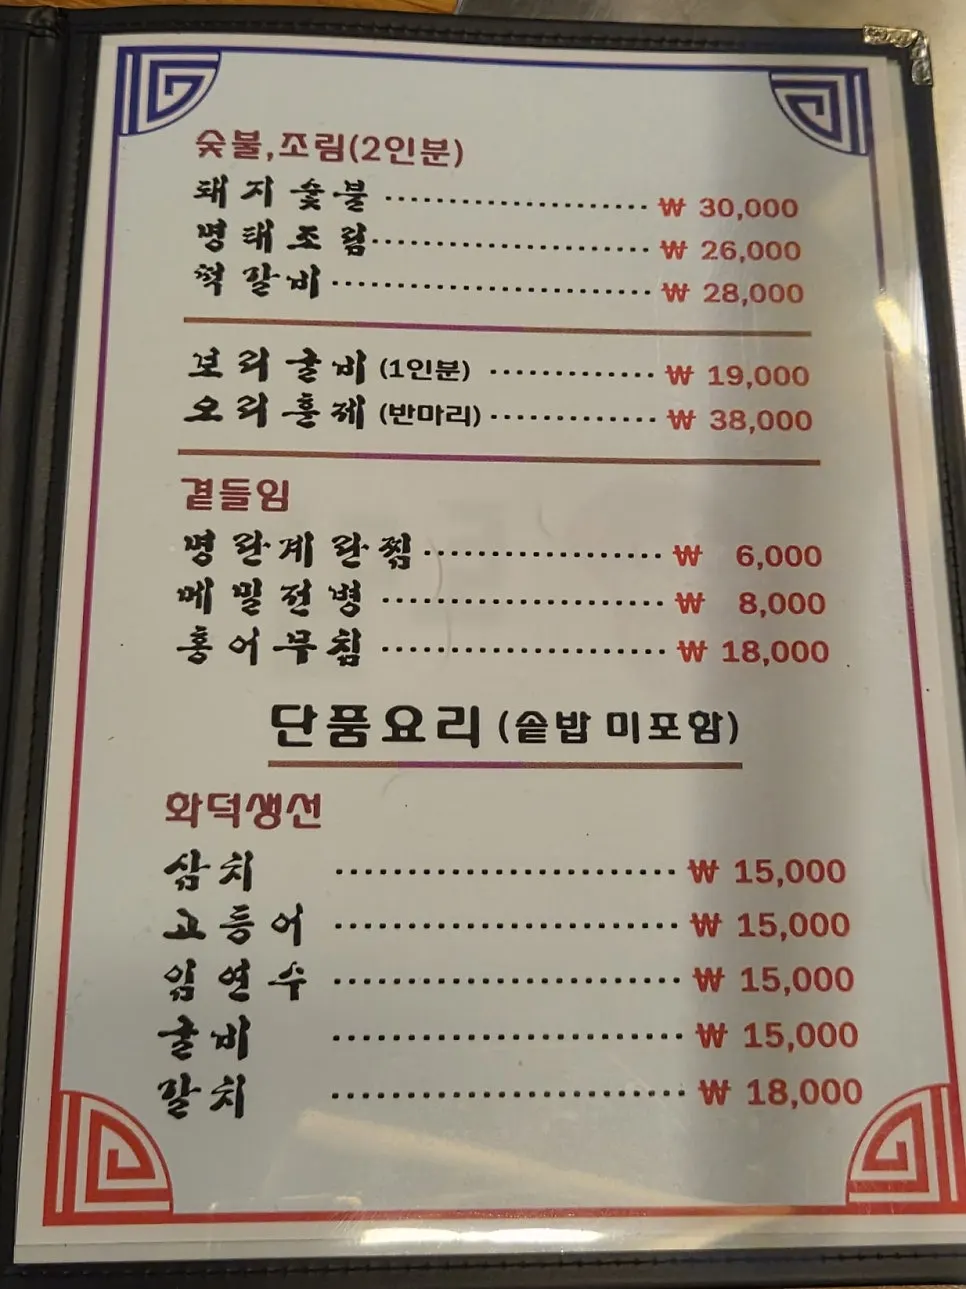 숯불,조림(2인분)
돼지숯불 ₩ 30,000
명태조림 ₩ 26,000
떡갈비 ₩ 28,000
보리굴비 (1인분) ₩ 19,000
오리훈제 (반마리) ₩ 38,000
곁들임
명란계란찜 ₩ 6,000
메밀전병 ₩ 8,000
홍어무침 ₩ 18,000
단품요리 (솥밥 미포함)
화덕생선
삼치 ₩ 15,000
고등어 ₩ 15,000
임연수 ₩ 15,000
굴비 ₩ 15,000
갈치 ₩ 18,000